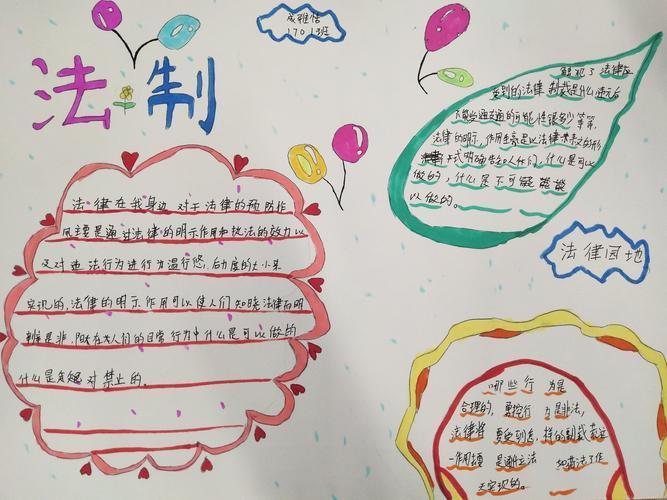 法制
成雅恬
1701班
法律在我身边 对于法律的预防作
用主要是通过法律的明示作用和执法的效力以
及对违法行为进行为
实现的，法律的明示作用可以使人们知晓法律而明
辨是非，即在人们的日常行为中什么是可以做的
什么是 对禁上的。
触犯了法律应
受到的法律 制裁是什么违元后
能 的可能性很多少等等，
法律的明示，作用 是以法律 的形
式明确告知人们，什么是可以
做的，什么是不可能
以做的。
法律园地
哪些行 为是
合理的， 行 为是非法，
法律将 要 到怎，样的制裁
一作用 是通 立法 和 法工作
去实现的。